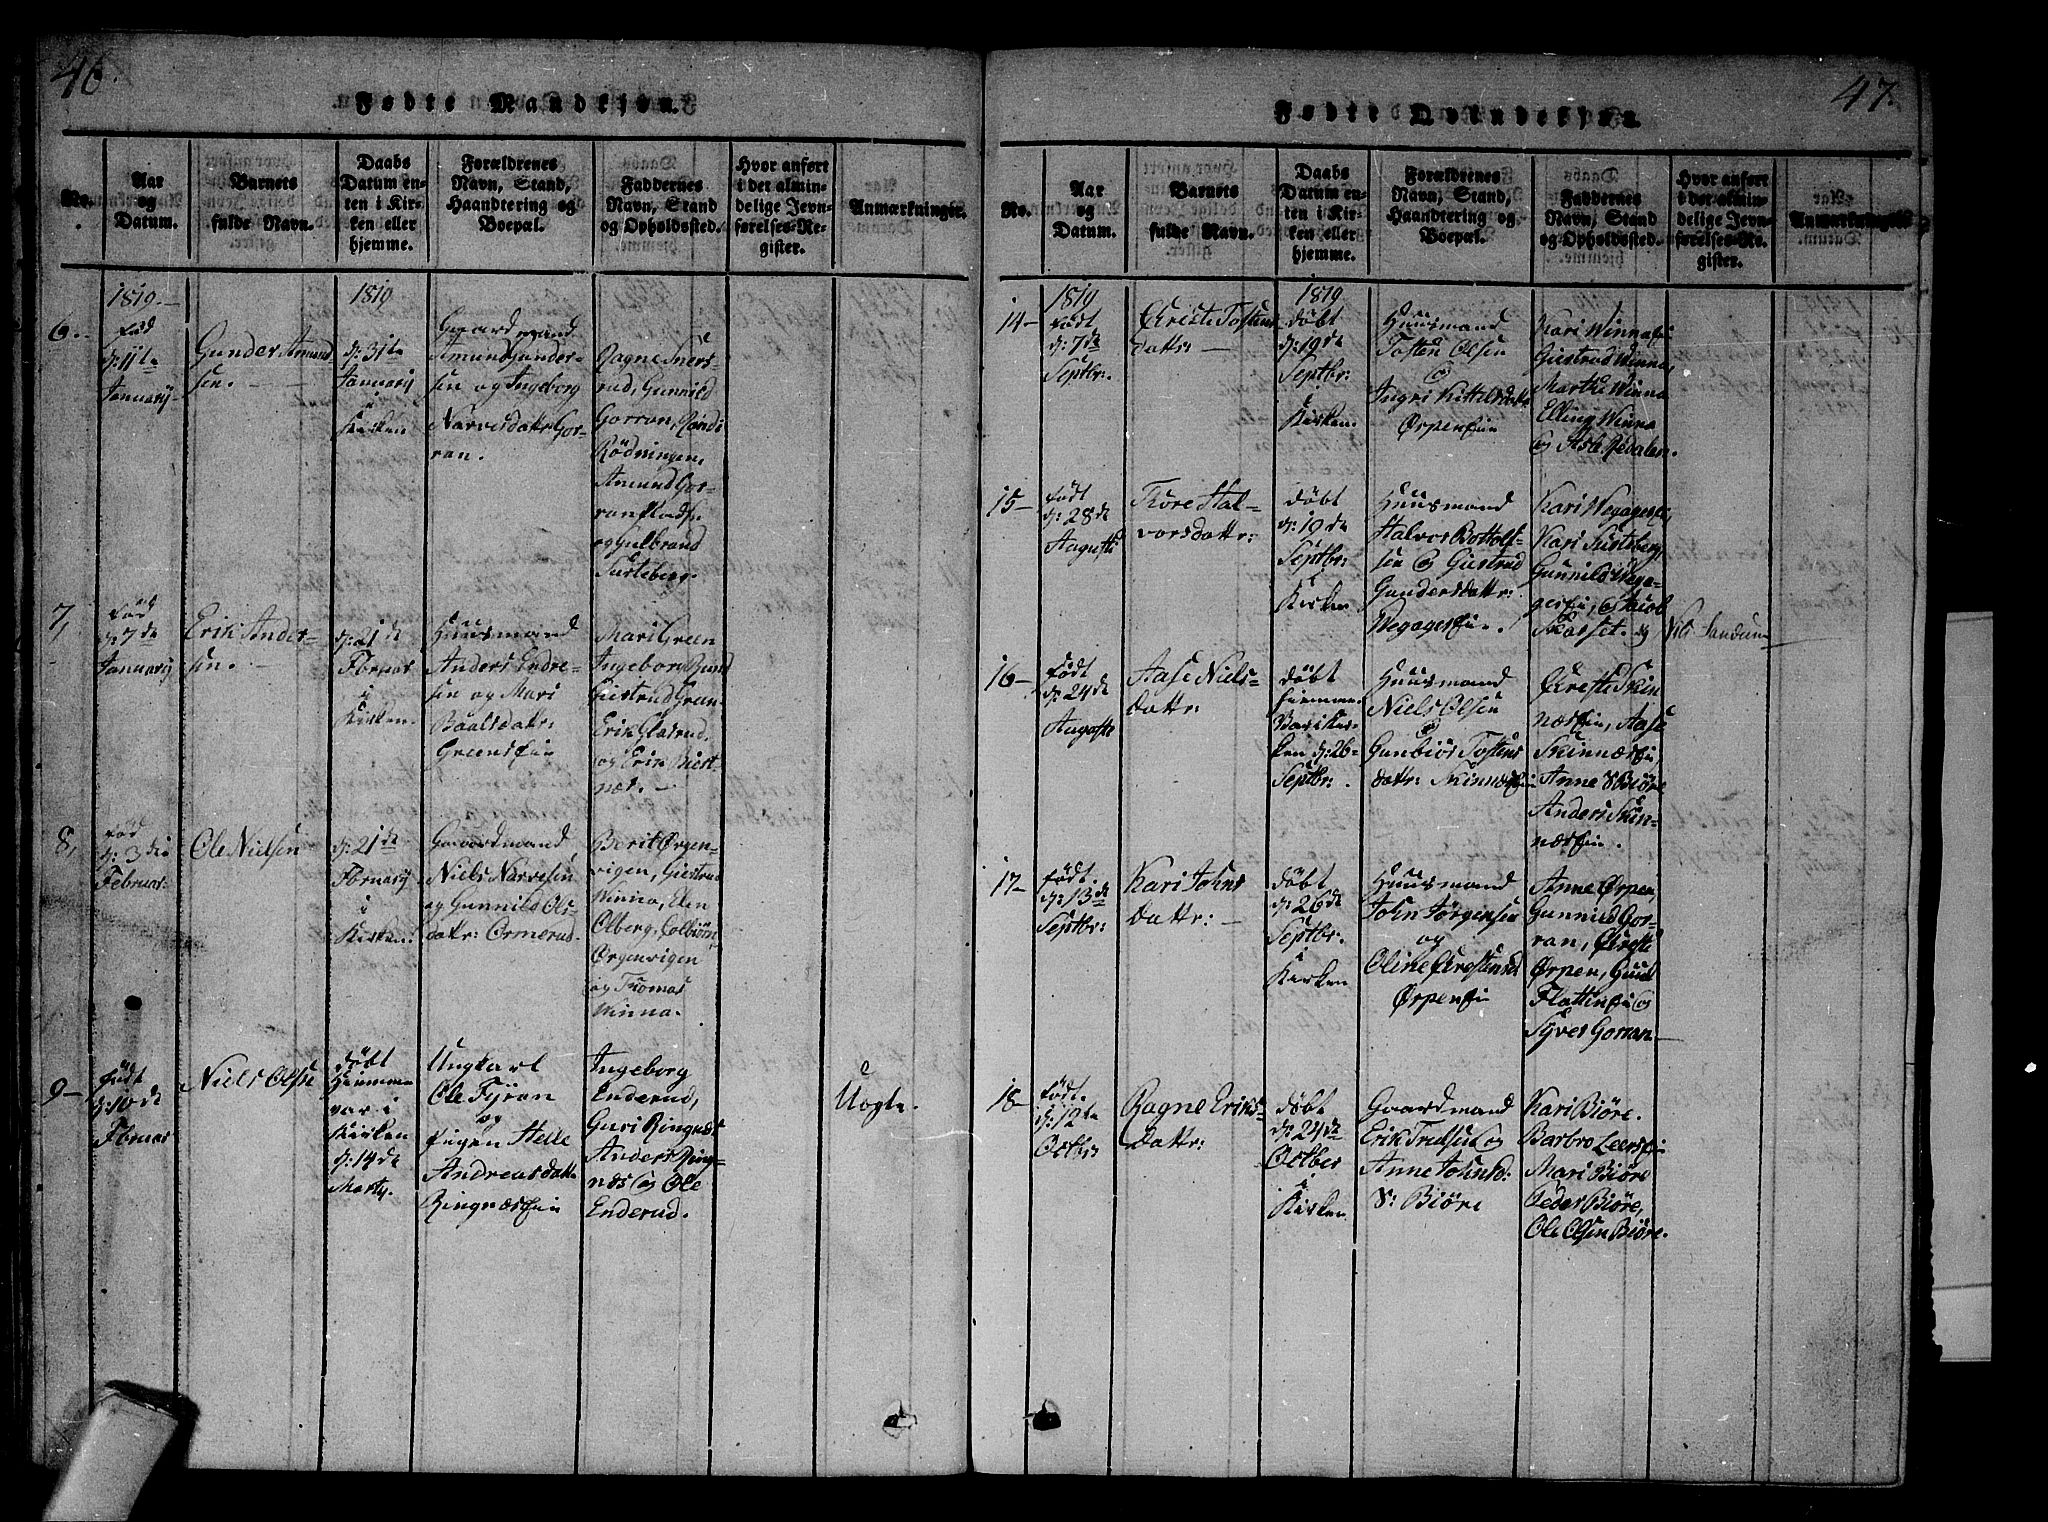 46.
Fødte Mandkjøn.
No.
Aar
og
Datum.
Barnets
fulde Navn.
Daabs
Datum en-
ten i Kir-
ken eller
hjemme.
Forældrenes
Navn, Stand,
Haandtering og
Boepæl.
Faddernes
Navn, Stand
og Opholdssted.
Hvor anført
i det almin-
delige Jevn-
førelses-Re-
gister.
Anmærkninger.
6.
1819.
Fød
d: 11te
Januarij
Gunder Amund
sen.
1819
d: 31te
Januarij
i
Kirken
Gaardmand
Amund Gunder-
sen og Ingeborg
Narvesdatr: Gor-
ran.
Ragne Sners-
rud, Gunnild
Gorran, Randi
Rödningen,
Amund Gor-
ran
og Gulbrand
Surteberg.
7,
Fød
d: 7de
Januarij
Erik Ander-
sen.
d: 21de
Febrnar
i
Kirken.
Huusmand
Anders Endre-
sen og Mari
Baalsdatr:
Greenseie
Mari Green
Ingeborg Rund
Giertrud Green
Erik Glasrud,
og Erik Biert-
næs.
8,
Fød
d: 3die
Februar
Ole Nielsen
d: 21de
Febrnarij
i
Kirken
Gaardmand,
Niels Narvesen
og Gunnild Ols-
datr: Ormerud.
Berit Ørgen-
vigen, Giertrud
Winna, Elen
Olberg, Colbiørn
Ørgenvigen
og Thomas
Winna.
9
Født
d: 10de
Februar
Niels Olsen
Döbt
Hiemme
var i
Kirken
d: 14de
Martij.
Ungkarl
Ole Fyran
og
Pigen Helle
Andreasdatter
Ringnæseie
Ingeborg
Enderud,
Guri Ringnæs
Anders Ring-
næs og Ole
Enderud.
Uægte.
47.
Fødte Qvindekjøn.
No.
Aar
og
Datum.
Barnets
fulde Navn.
Daabs
Datum en-
ten i Kir-
ken eller
hjemme.
Forældrenes
Navn, Stand,
Haandtering og
Boepæl.
Faddernes
Navn, Stand
og Opholdssted.
Hvor anført
i det almin-
delige Jevn-
førelses-Re-
gister.
Anmærkninger
14
1819
Født
d: 7de
Septbr:
Christi Tostens
datter
1819
Döbt
d: 19de
Septbr:
i
Kirken
Huusmand
Tosten Olsen
og
Ingri Kittelsdatr
Ørpeneie
Kari Winnaeie
Giertrud Winna,
Marthe Winna
Elling Winna
og Asle Redalen.
15
Født
d: 28de
Augusti
Thore Hal-
vorsdattr:
Döbt
d: 19de
Septbr:
i
Kirken
Huusmand
Halvor Bottolf-
sen og Giertrud
Gundersdattr:
Wegagereie.
Kari Wegagereie,
Kari Surteberg,
Gunnild Wega-
gereie, og Jacob
Skarset. og Nils Sandum
16
Født
d: 24de
Auguste
Aase Niels-
dattr:
Döbt
hiemme
Var i Kir-
ken d: 26
Septbr:
Huusmand
Niels Olsen
og
Gunbiør Tostens
dattr: Skinnæseie
Christi Skin
næseie, Aase
Skinnæseie,
Anne S Biöre
Anders Skin-
næseie.
17
Født
d: 13de
Septbr:
Kari Johns
dattr:
Döbt
d: 26de
Septbr.
i
Kirken
Huusmand
John Jørgensen
og
Oline Christensd
Ørpeneie
Anne Ørpen,
Gunnild Gor-
ran, Christi
Ørpen, Guul
Flattineie og
Syver Gorran
18
Født.
d: 12te
Octbr
Ragne Eriks-
dattr:
Döbt
d: 24de
Octber
i
Kirken
Gaardmand
Erik Trulsen og
Anne Johnsd:
S: Biöre
Kari Biöre.
Barbro Leerseie
Mari Biöre
Peder Biöre,
Ole Olsen Biöre.